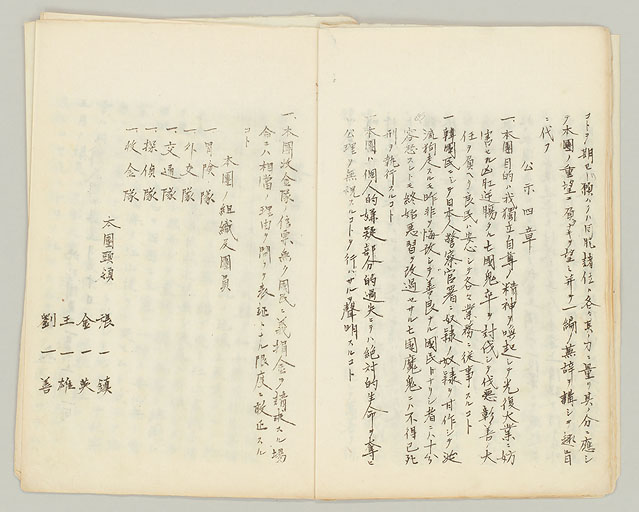 コトヲ期セヨ願ハクハ同胞諸位ハ各々其ノ力ニ量リ其ノ分ニ應シ
テ本團ノ重望ニ負カサラ望ミ并テ一掬ノ蕪辞ヲ構シテ趣旨
ニ代フ
公示四章
一、本團目的ハ我獨立自尊ノ精神ヲ喚起シテ光復大業ニ妨
害セル凶肚逆腸ノ亡國鬼卒ヲ討伐シテ伐惡彰善ノ大
任ヲ負ヘテ良民ニ忠シク各々業務ニ從事スルコト
一、韓國民ニシテ日本人警察官署ニ奴隷ノ奴隷ヲ甘作シテ逆
流狗走スルモ昨非ヲ悔改シテ善民ナル國民トナリシ者ニハ十分
容恕スレトモ終始惡習ヲ改過セサル亡國魔鬼ニハ不得已死
刑ヲ執行スルコト
本團ハ個人的嫌疑部分的過失ヲハ絶対的生命ヲ奪ヒ
公理ヲ無視スルコトヲ行ハサルヲ聲明スルコト
一、本團收金隊ノ信票無ク國民ニ義捐金ヲ請求スル場
合ニハ相當ノ理由ヲ問ヒテ表証シル限度ニ敢近スル
コト
本團ノ組織及團員
一冒險隊
一外交隊
一交通隊
一探偵隊
一收金隊
本團頭領
張一鎮
金一英
王一雄
劉一善